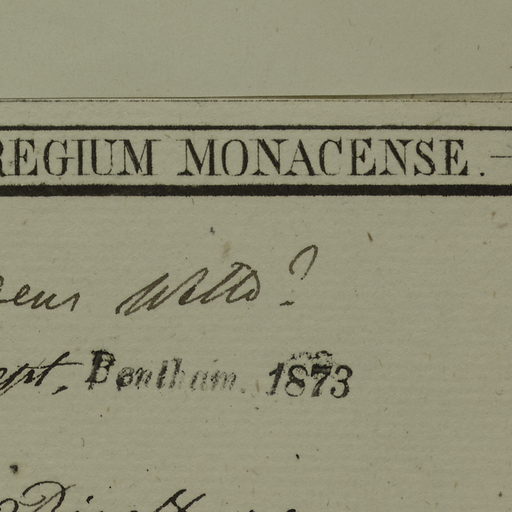 REGIUM MONACENSE. —
ens Willd?
ept, Bentham. 1873